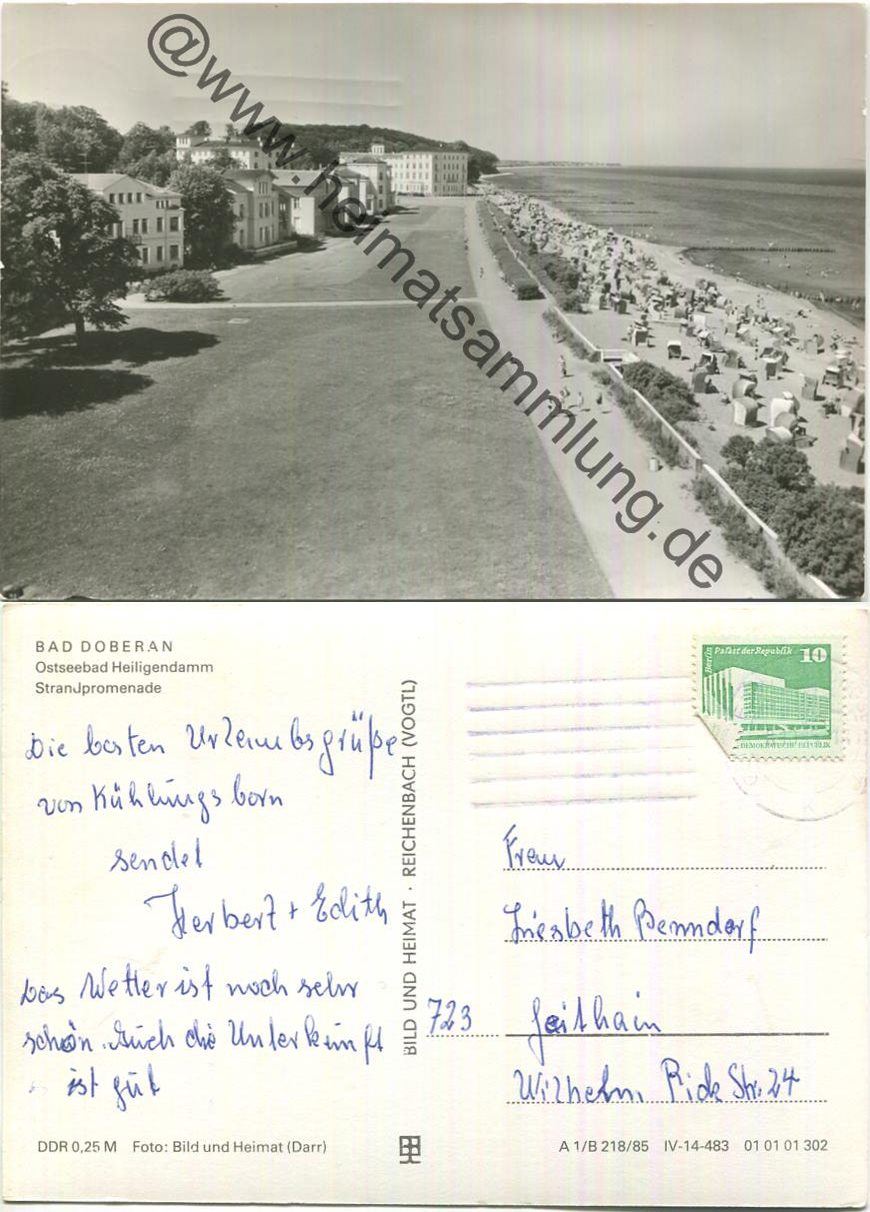 @www.heimatsammlung.de
BAD DOBERAN
Ostseebad Heiligendamm
Strandpromenade
Die besten Urlaubsgrüße
von Kühlungsborn
sendet
Herbert + Edith
Das Wetter ist noch sehr
schön. Auch die Unterkunft
ist gut
DDR 0,25 M Foto: Bild und Heimat (Darr)
BILD UND HEIMAT · REICHENBACH (VOGTL)
Berlin Palast der Republik 10
DEMOKRATISCHE REPUBLIK
Frau
Liesbeth Benndorf
723 Geithain
Wilhelm Pick Str. 24
A 1/B 218/85 IV-14-483 01 01 01 302